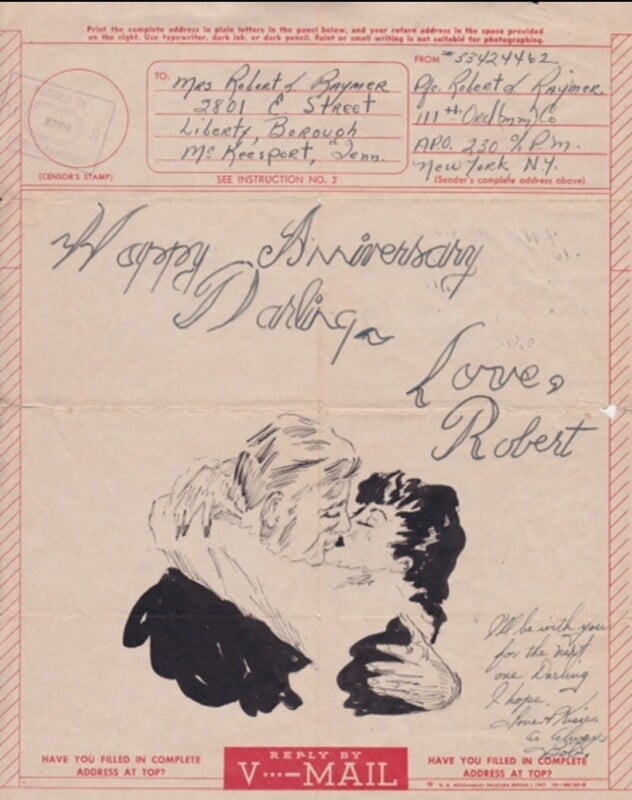 Print the complete address in plain letters in the panel below, and your return address in the space provided
on the right. Use typewriter, dark ink, or dark pencil. Faint or small writing is not suitable for photographing.
FROM #33424462
TO:
Mrs Robert J. Raymer
2801 E Street
Liberty, Borough
McKeesport, Penn.
Pfc. Robert J. Raymer
111th Ord (mm) Co
A.P.O. 230 % P.M.
New York, N.Y.
(CENSOR'S STAMP)
SEE INSTRUCTION NO. 2
(Sender's complete address above)
Happy Anniversary
Darling
Love,
Robert
I'll be with you
for the next
one Darling
I hope.
Love + Kisses
as always
Bob
HAVE YOU FILLED IN COMPLETE
ADDRESS AT TOP?
REPLY BY
V···—MAIL
HAVE YOU FILLED IN COMPLETE
ADDRESS AT TOP?
U. S. GOVERNMENT PRINTING OFFICE